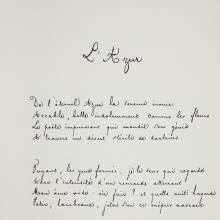 L'Azur
De l'éternel Azur la sereine ironie
Accable, belle indolemment comme les fleurs
Le poëte impuissant qui maudit son génie
À travers un désert stérile de douleurs.
Fuyant, les yeux fermés, je le sens qui regarde
Avec l'intensité d'un remords atterrant
Mon âme vide. Où fuir ? Et quelle nuit hagarde
Jeter, lambeaux, jeter sur ce mépris navrant